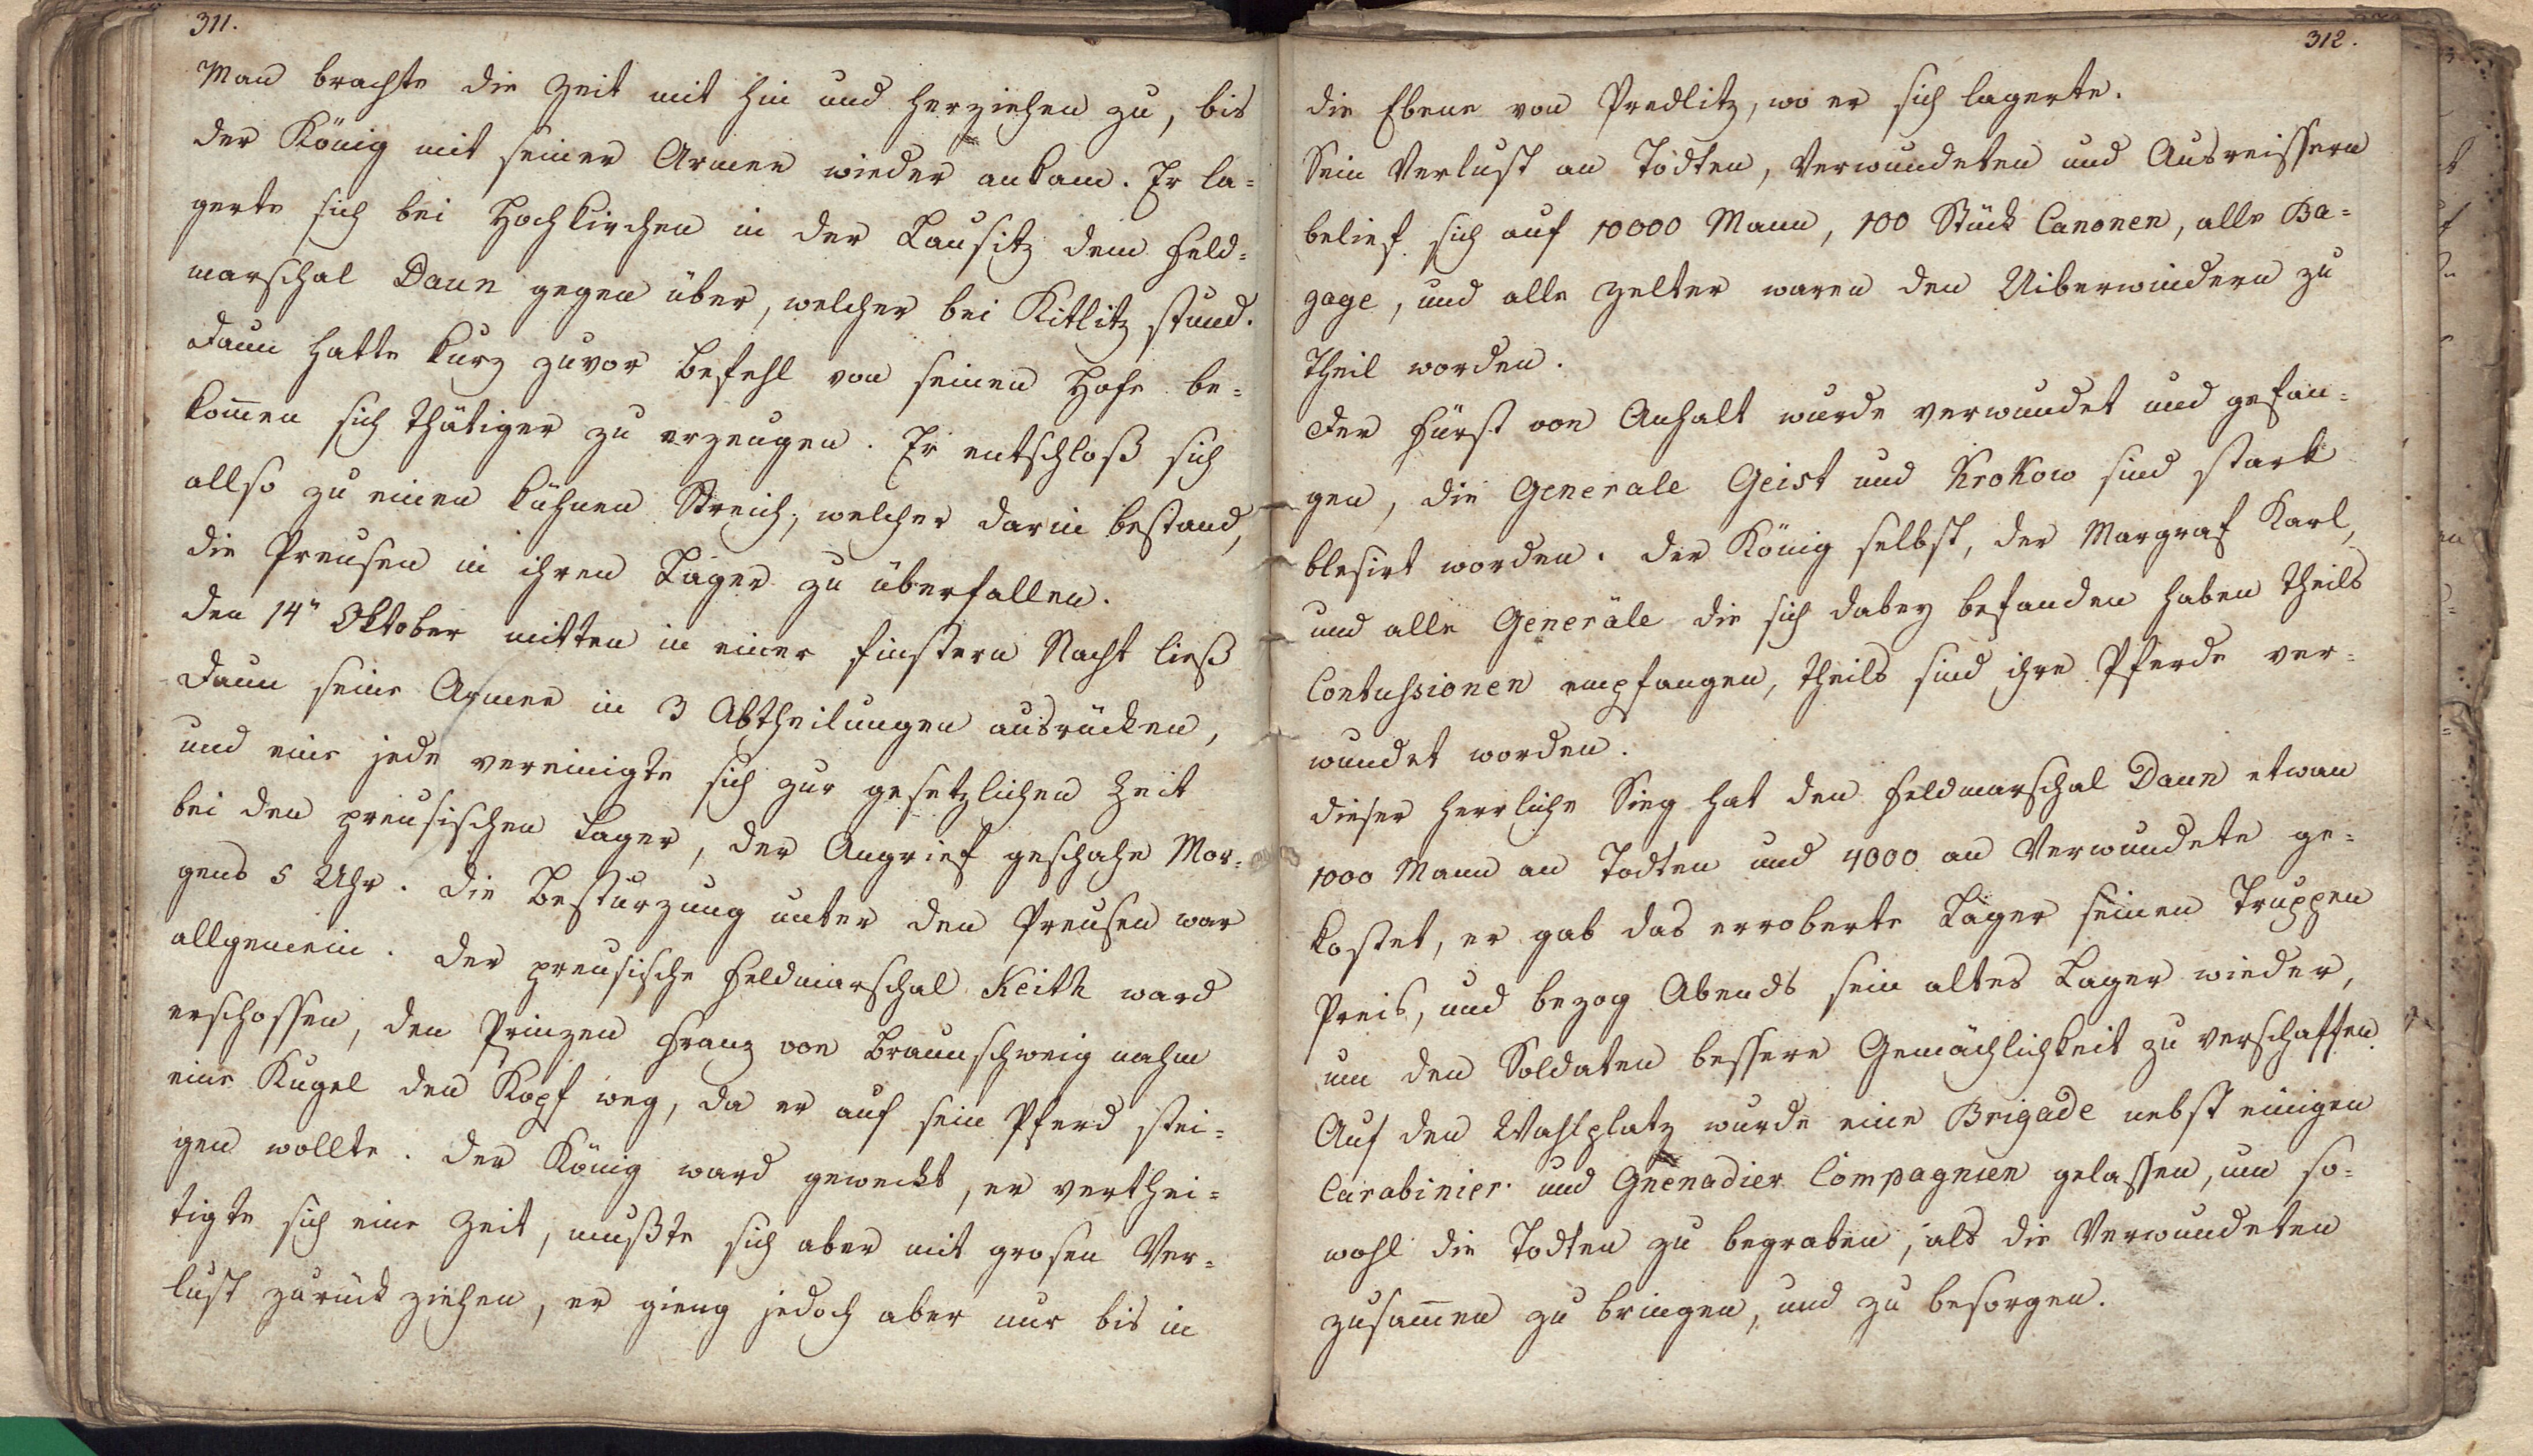 311.
Man brachte die Zeit mit hin und herziehen zu, bis
der König mit seiner Armee wieder ankam. Er la=
gerte sich bei Hochkirchen in der Lausitz dem Feld=
marschal Daun gegen über, welcher bei Kitlitz stund.
Daun hatte kurz zuvor Befehl von seinen Hofe be=
kom̄en sich thätiger zu erzeugen. Er entschloß sich
allso zu einen kühnen Streich, welcher darin bestand,
die Preusen in ihren Lager zu überfallen.
den 14" Oktober mitten in einer finstern Nacht ließ
Daun seine Armee in 3 Abtheilungen ausrücken,
und eine jede vereinigte sich zur gesetzlichen Zeit
bei den preusischen Lager, der Angrief geschahe Mor=
gens 5 Uhr. Die Besturzung unter den Preusen war
allgemein. Der preusische Feldmarschal Keith ward
erschossen, den Prinzen Franz von Braunschweig nahm
eine Kugel den Kopf weg, da er auf sein Pferd stei=
gen wollte. Der König ward geweckt, er verthei=
tigte sich eine Zeit, mußte sich aber mit grosen Ver=
lust zurück ziehen, er gieng jedoch aber nur bis in
312.
die Ebene von Predlitz, wo er sich lagerte.
Sein Verlust an Todten, Verwundeten und Ausreissern
belief sich auf 10000 Mann, 100 Stück Canonen, alle Ba=
gage, und alle Zelter waren den Uiberwindern zu
theil worden.
Der Fürst von Anhalt wurde verwundet und gefan=
gen, die Generale Geist und Krokow sind stark
blesirt worden. Der König selbst, der Margraf Karl,
und alle Generäle die sich dabey befanden haben theils
Contussionen empfangen, theils sind ihre Pferde ver=
wundet worden.
dieser herrliche Sieg hat den Feldmarschal Daun etwan
1000 Mann an Todten und 4000 an Verwundete ge=
kostet, er gab das erroberte Läger seinen Truppen
Preis, und bezog Abends sein altes Lager wieder,
um den Soldaten bessere Gemächlichkeit zu verschaffen.
Auf den Wahlplatz wurde eine Brigade nebst einigen
Carabinier und Grenadier Compagnien gelassen, um so=
wohl die Todten zu begraben, als die Verwundeten
zusam̄en zu bringen, und zu besorgen.